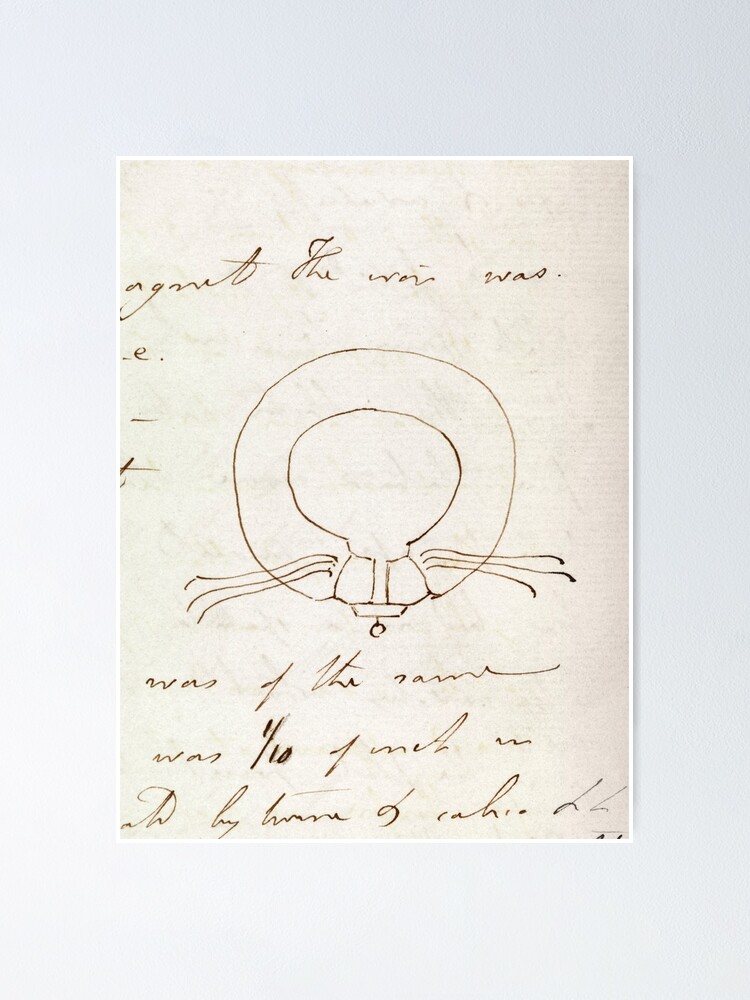 agnet The iron was.
e.
was of the same
was 1/10 of inch in
by twine & calico